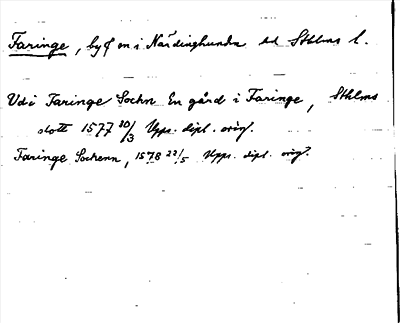 Faringe, by o en i Närdinghundra hd Sthlms l.
Vdi Faringe Sochn En gård i Faringe, Sthlms
slott 1577 30/3 Upps. dipl. orig.
Faringe Sochenn, 1578 22/5 Upps. dipl. orig.